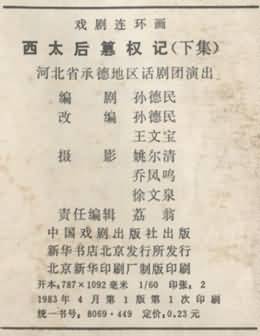 戏剧连环画
西太后篡权记(下集)
河北省承德地区话剧团演出
编 剧 孙德民
改 编 孙德民
王文宝
摄 影 姚尔清
乔凤鸣
徐文泉
责任编辑 荔 翁
中国戏剧出版社出版
新华书店北京发行所发行
北京新华印刷厂制版印刷
开本:787×1092毫米 1/60 印张:2
1983年4月第1版第1次印刷
统一书号:8069·449 定价:0.23元